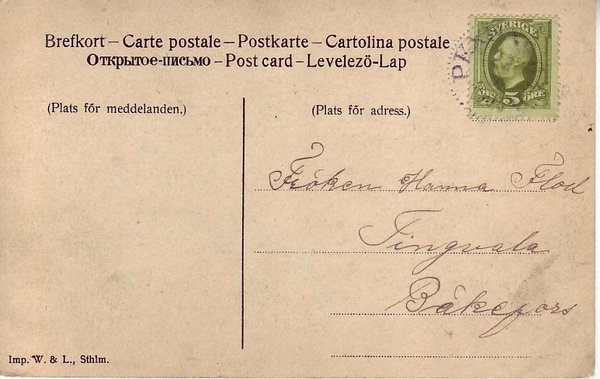 Brefkort – Carte postale – Postkarte – Cartolina postale
Открытое-письмо – Post card – Levelező-Lap
SVERIGE
5
ÖRE
(Plats för meddelanden.)
(Plats för adress.)
Fröken Hanna Flod
Tingvala
Bäkefors
Imp. W. & L., Sthlm.